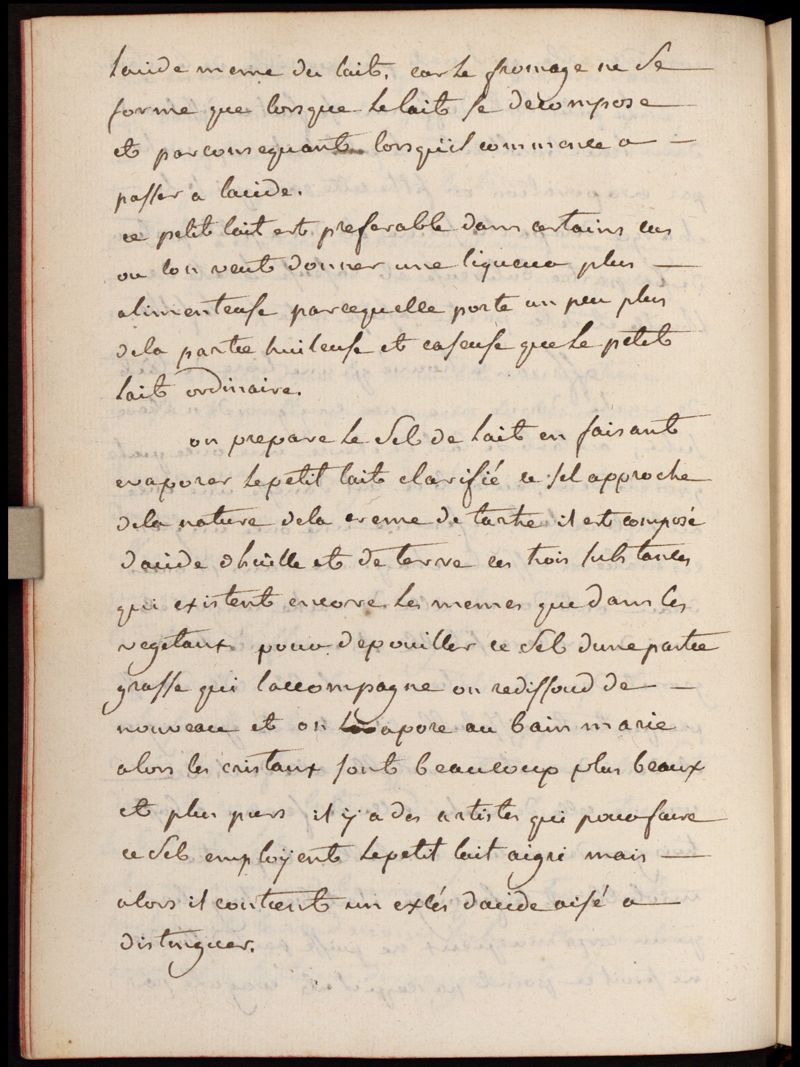 lacide meme du lait, car le fromage ne se
forme que lorsque le lait se decompose
et par consequant lorsquil commence a
passer a lacide.
ce petit lait est preferable dans certains cas
ou lon veut donner une liqueur plus
alimenteuse parcequelle porte un peu plus
dela partie huileuse et caseuse que le petit
lait ordinaire.
on prepare le Sel de lait en faisant
evaporer le petit lait clarifié ce sel approche
dela nature dela creme de tartre il est composé
dacide dhuille et de terre ces trois substances
qui existent encore les memes que dans les
vegetaux pour depouiller ce Sel dune partie
grasse qui laccompagne on redissoud de
nouveau et on evapore au bain marie
alors les cristaux sont beaucoup plus beaux
et plus purs il ÿ a des artistes qui pour faire
ce Sel emploÿent le petit lait aigri mais
alors il contient un excés dacide aisé a
distinguer.